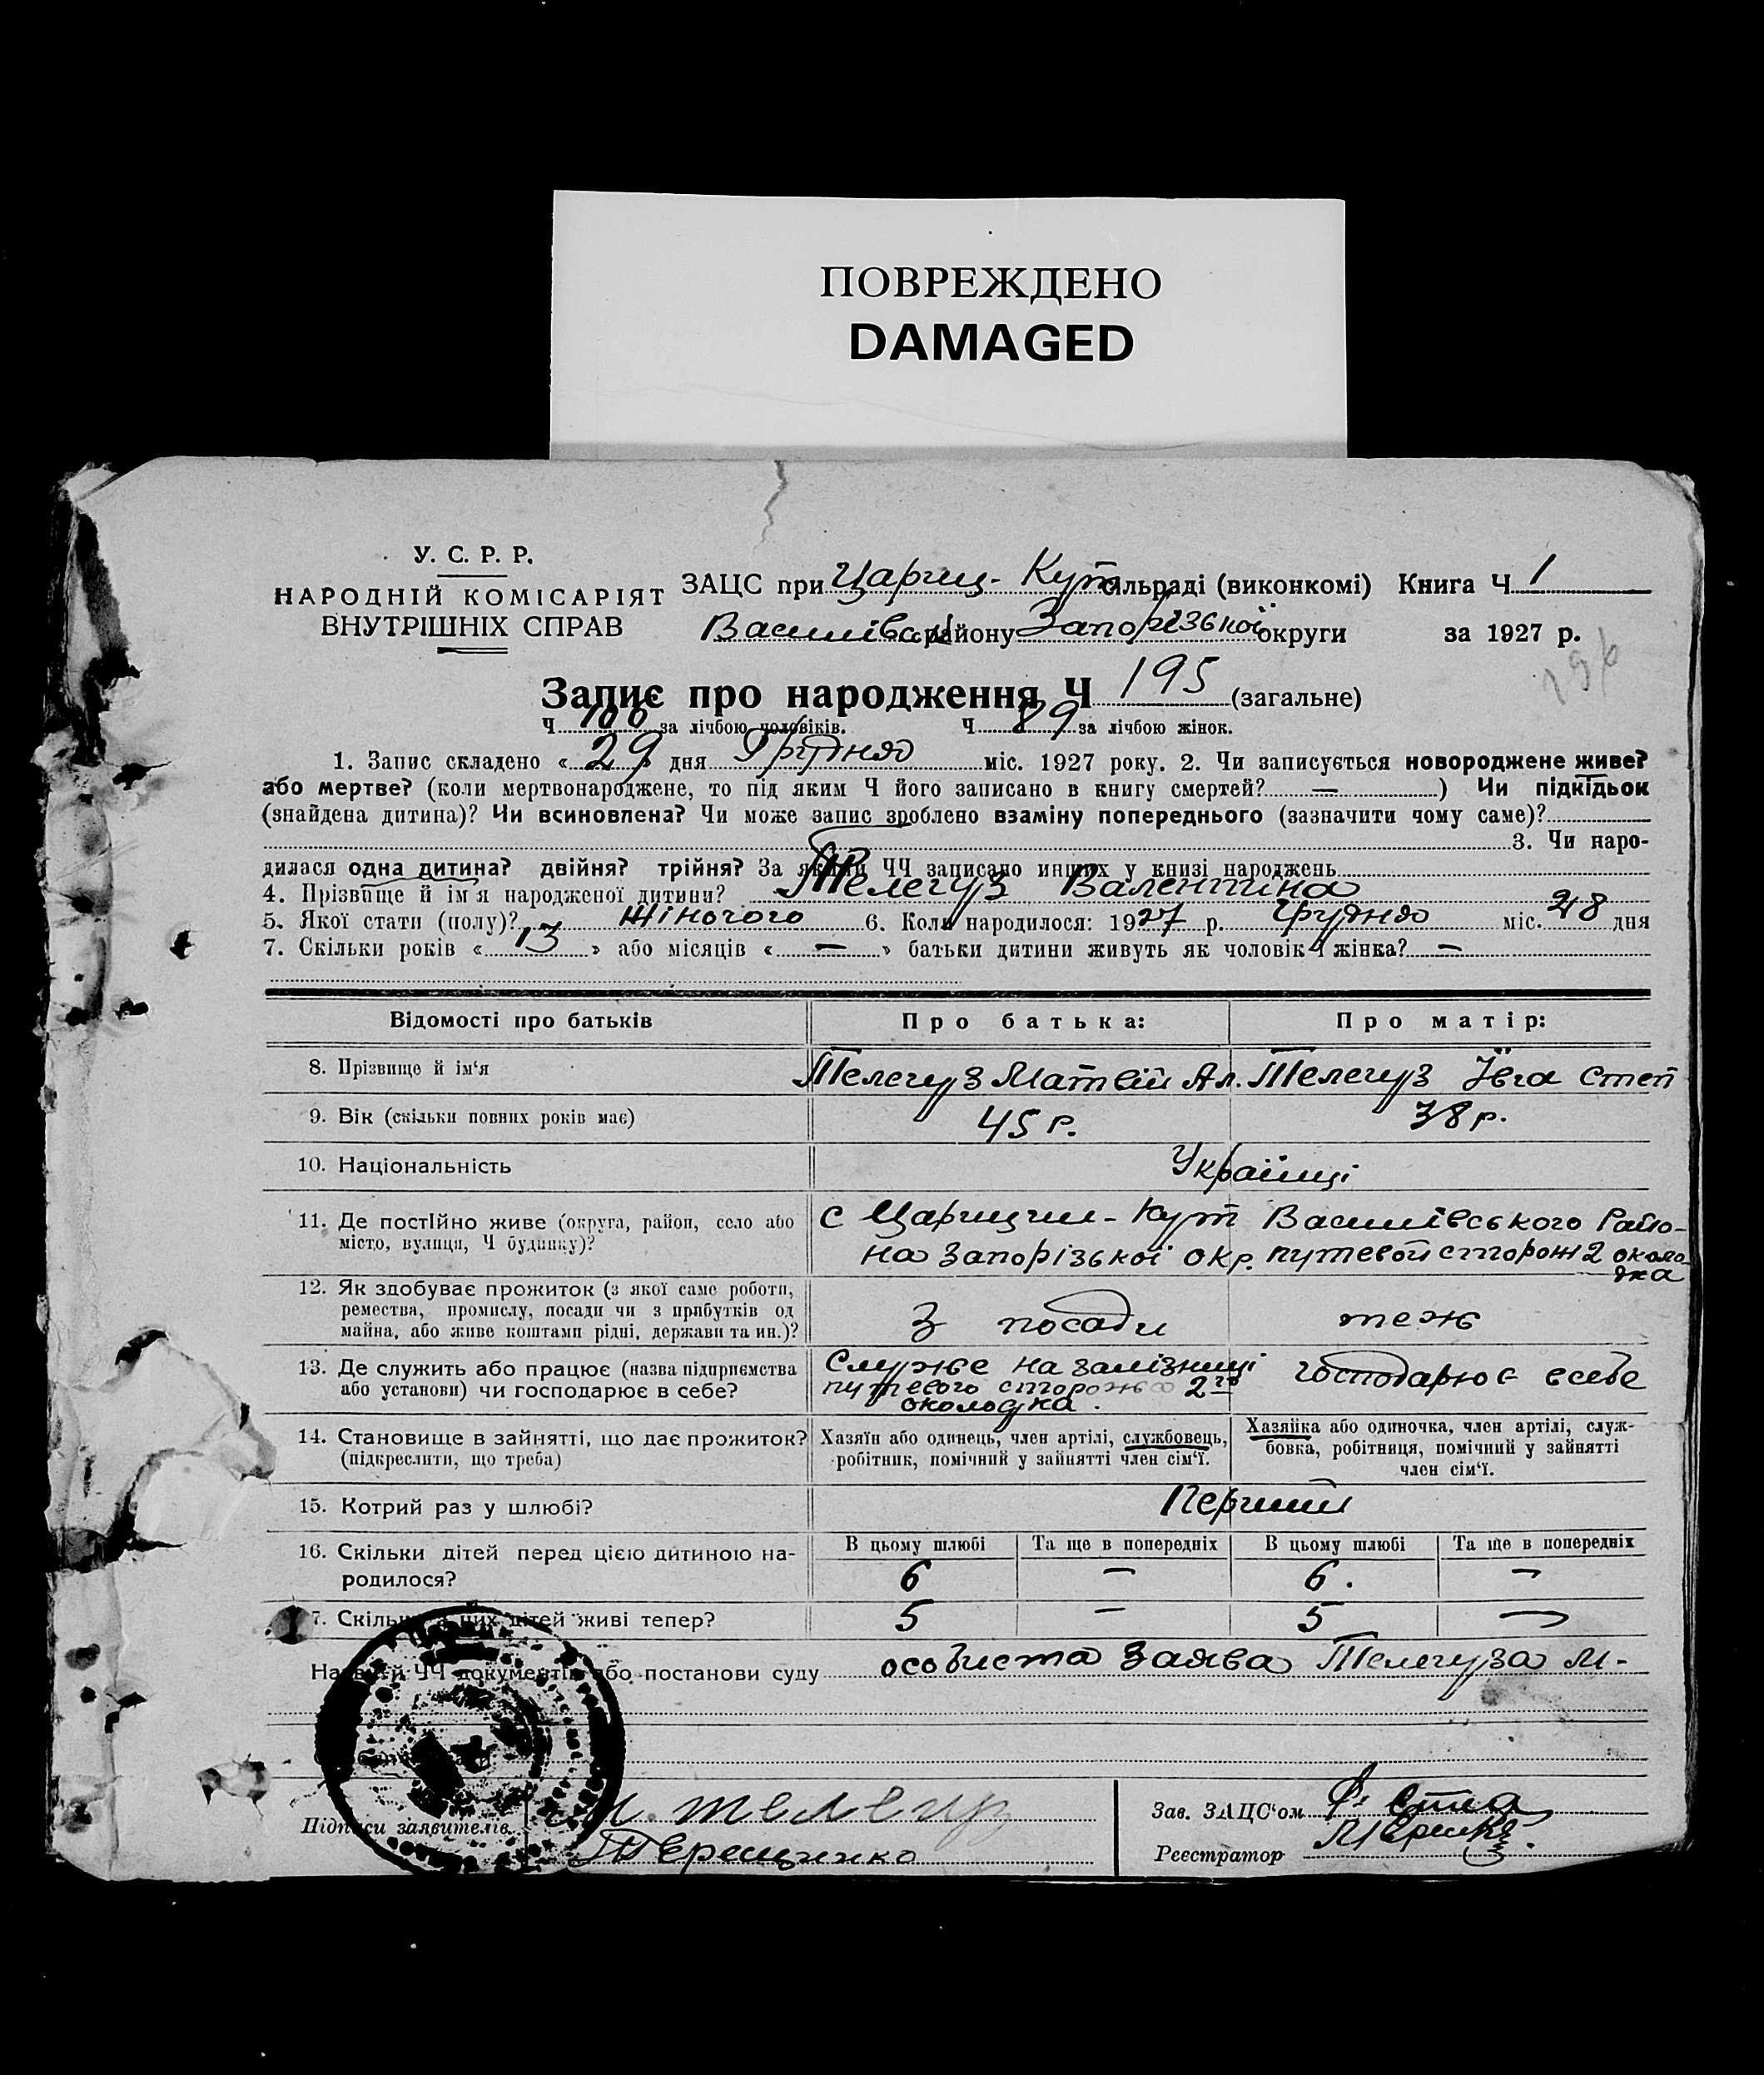 ПОВРЕЖДЕНО
DAMAGED
У. С. Р. Р.
НАРОДНІЙ КОМІСАРІЯТ
ВНУТРІШНІХ СПРАВ
ЗАЦС при Цариц- Кут сільраді (виконкомі) Книга Ч 1
Василівськ району Запорізької округи за 1927 р.
196
Запис про народження Ч 195 (загальне)
Ч 106 за лічбою чоловіків. Ч 89 за лічбою жінок.
1. Запис складено « 29 » дня Грудня міс. 1927 року. 2. Чи записується новороджене живе?
або мертве? (коли мертвонароджене, то під яким Ч його записано в книгу смертей? — ) Чи підкідьок
(знайдена дитина)? Чи всиновлена? Чи може запис зроблено взаміну попереднього (зазначити чому саме)?
3. Чи наро-
дилася одна дитина? двійня? трійня? За якими ЧЧ записано инших у книзі народжень
4. Прізвище й ім'я народженої дитини? Телегуз Валентина
5. Якої стати (полу)? Жіночого 6. Коли народилося: 1927 р. Грудня міс. 28 дня
7. Скільки років « 13 » або місяців « — » батьки дитини живуть як чоловік й жінка? —
Відомості про батьків Про батька: Про матір:
8. Прізвище й ім'я Телегуз Матвій Ал. Телегуз Ївга Степ
9. Вік (скільки повних років має) 45 р. 38 р.
10. Національність Українці
11. Де постІйно живе (округа, район, село або С Царицин-Кут Василівського Райо-
місто, вулиця, Ч будинку)? на Запорізької окр. путевой сторож 2 около-
дка
12. Як здобуває прожиток (з якої саме роботи,
ремества, промислу, посади чи з прибутків од З посади теж
майна, або живе коштами рідні, держави та ин.)?
13. Де служить або працює (назва підприємства Служе на залізниці господарює в себе
або установи) чи господарює в себе? путевого сторожа 2го
околодка.
14. Становище в зайнятті, що дає прожиток? Хазяїн або одинець, член артілі, службовець, Хазяйка або одиночка, член артілі, служ-
(підкреслити, що треба) робітник, помічний у зайнятті член сім'ї. бовка, робітниця, помічний у зайнятті
член сім'ї.
15. Котрий раз у шлюбі? Перший
16. Скільки дітей перед цією дитиною на- В цьому шлюбі Та ще в попередніх В цьому шлюбі Та ще в попередніх
родилося? 6 — 6. —
17. Скільки з них дітей живі тепер? 5 — 5 —
Назви й ЧЧ документів або постанови суду особиста Заява Телегуза М-
Підписи заявителів М. телегуз
Терещенко
Зав. ЗАЦС'ом
Реєстратор